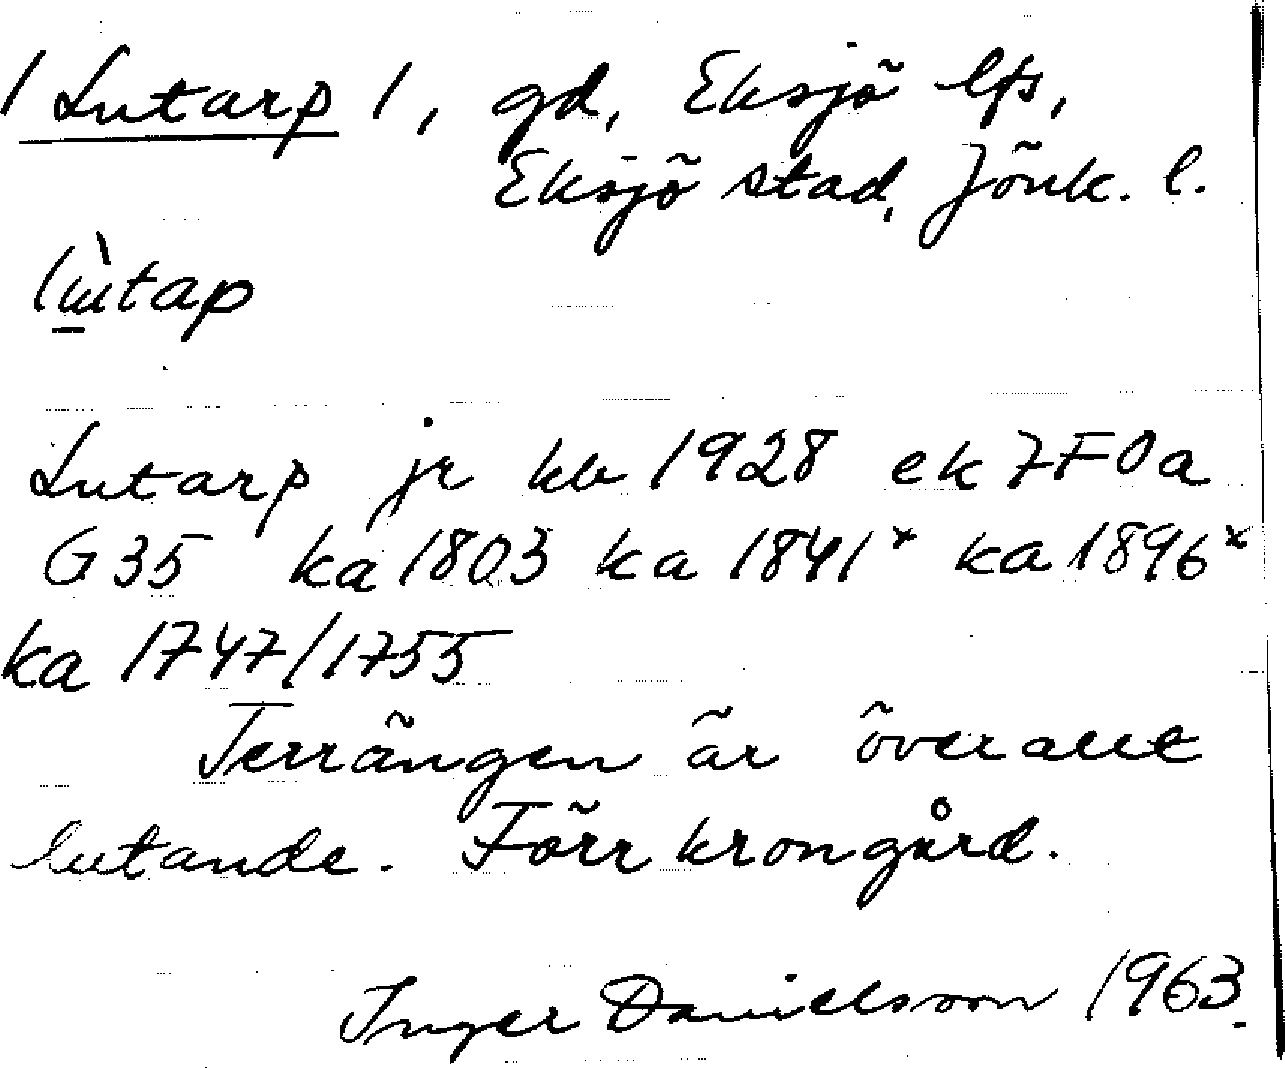 / Lutarp /, gd, Eksjö lfs,
Eksjö stad, Jönk. l.
Lutarp jr kb 1928 ek 7F0a
G35 ka 1803 ka 1841x ka 1896x
ka 1747/1755
Terrängen är överallt
lutande. Förr krongård.
Inger Danielsson 1963.